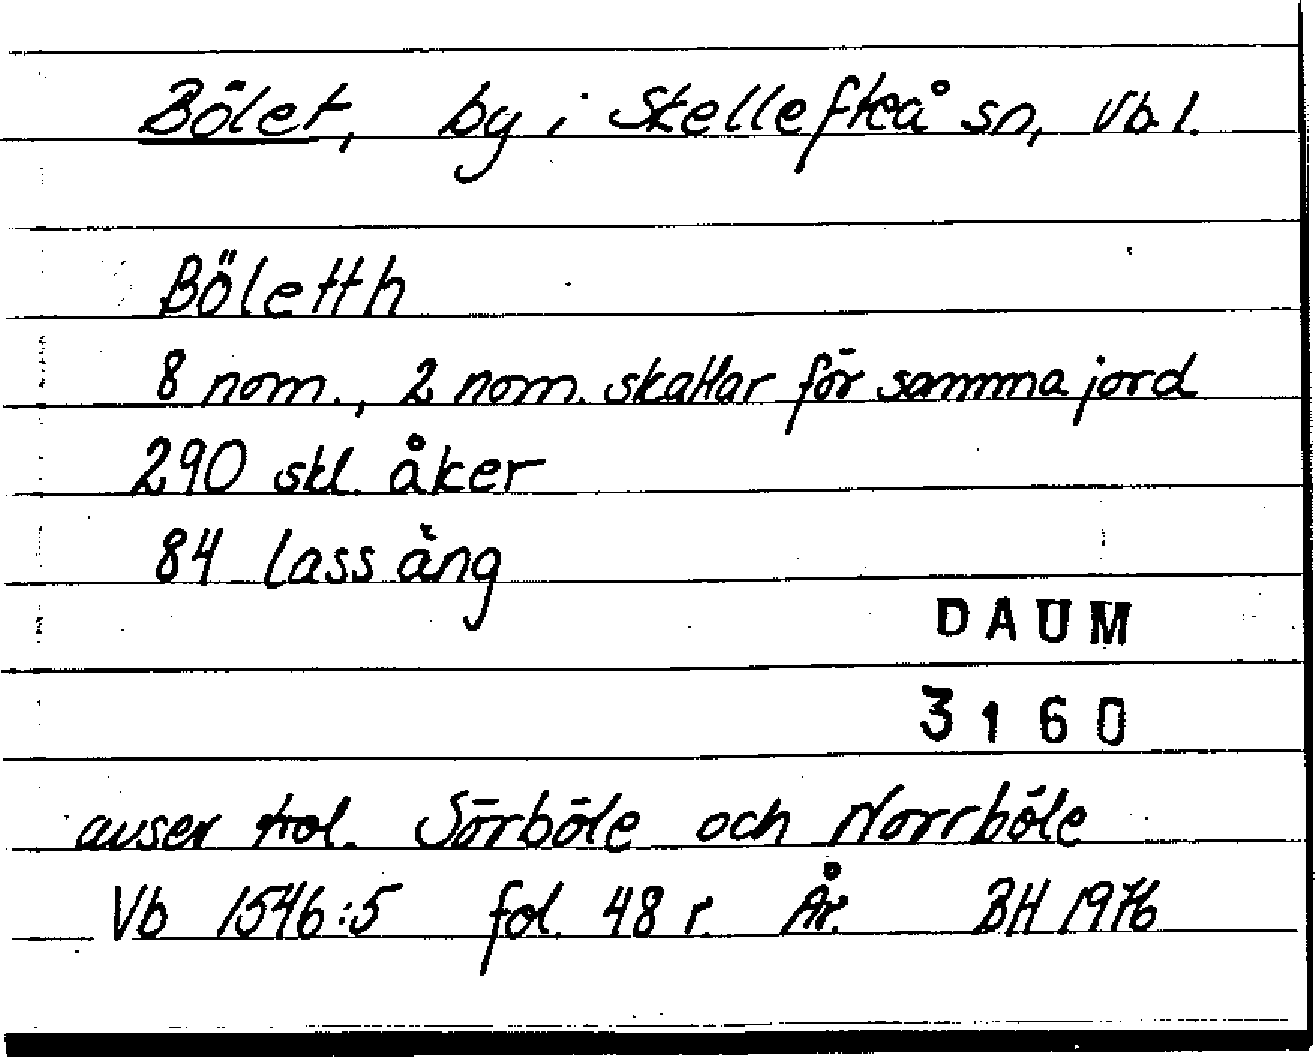 Bölet, by i Skellefteå sn, Vb l.
Böletth
8 nom., 2 nom. skattar för samma jord
290 skl. åker
84 lass äng
DAUM
3160
avser trol. Sörböle och Norrböle
Vb 1546:5 fol. 48 r. År. BH 1976